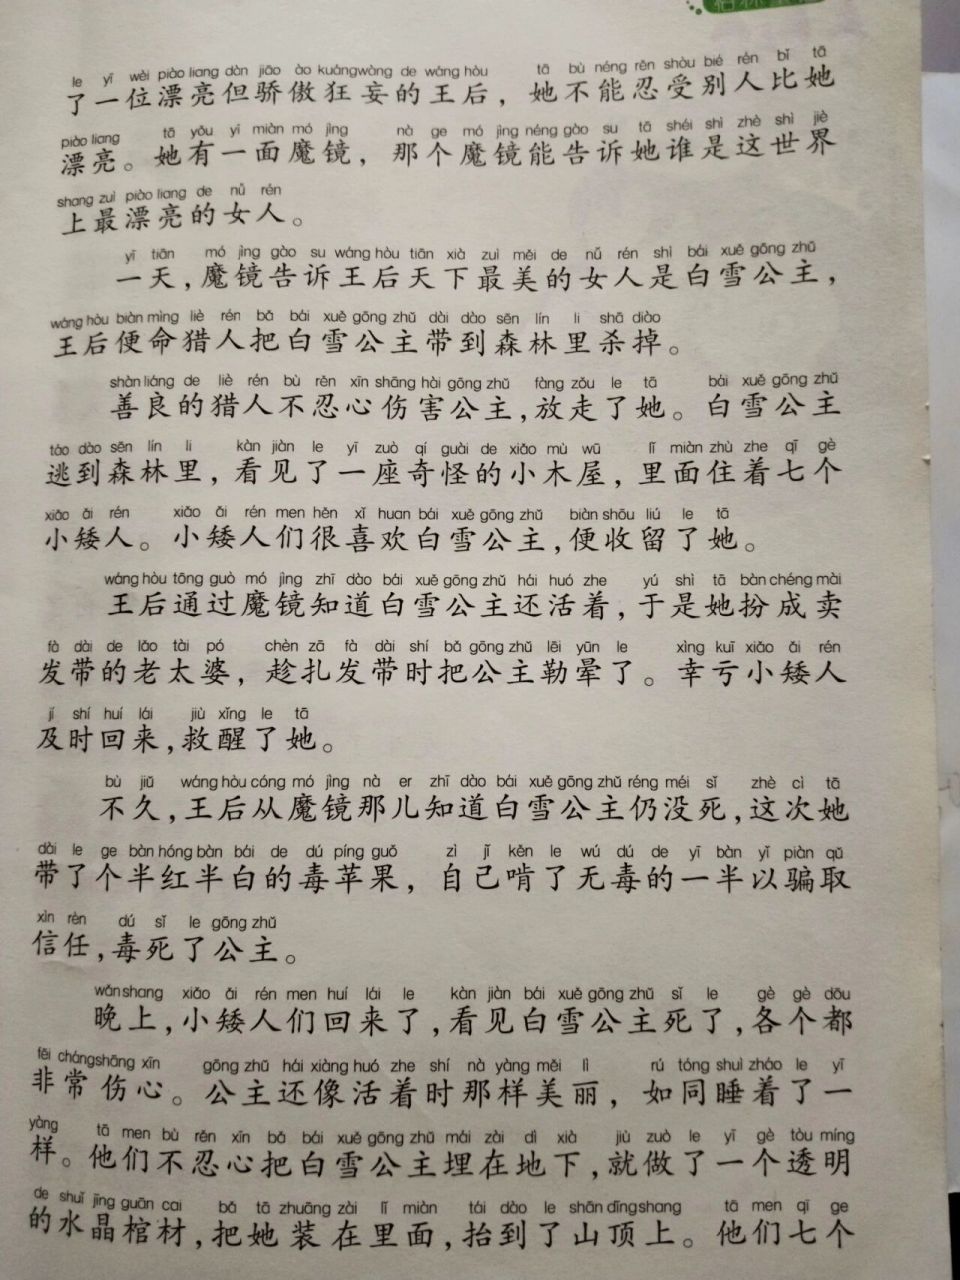 le yī wèi piào liang dàn jiāo ào kuáng wàng de wáng hòu tā bù néng rěn shòu bié rén bǐ tā
了一位漂亮但骄傲狂妄的王后，她不能忍受别人比她
piào liang tā yǒu yí miàn mó jìng nà ge mó jìng néng gào su tā shéi shì zhè shì jiè
漂亮。她有一面魔镜，那个魔镜能告诉她谁是这世界
shang zuì piào liang de nǚ rén
上最漂亮的女人。
yī tiān mó jìng gào su wáng hòu tiān xià zuì měi de nǚ rén shì bái xuě gōng zhǔ
一天，魔镜告诉王后天下最美的女人是白雪公主，
wáng hòu biàn mìng liè rén bǎ bái xuě gōng zhǔ dài dào sēn lín li shā diào
王后便命猎人把白雪公主带到森林里杀掉。
shàn liáng de liè rén bù rěn xīn shāng hài gōng zhǔ fàng zǒu le tā bái xuě gōng zhǔ
善良的猎人不忍心伤害公主，放走了她。白雪公主
táo dào sēn lín li kàn jiàn le yī zuò qí guài de xiǎo mù wū lǐ miàn zhù zhe qī gè
逃到森林里，看见了一座奇怪的小木屋，里面住着七个
xiǎo ǎi rén xiǎo ǎi rén men hěn xǐ huan bái xuě gōng zhǔ biàn shōu liú le tā
小矮人。小矮人们很喜欢白雪公主，便收留了她。
wáng hòu tōng guò mó jìng zhī dào bái xuě gōng zhǔ hái huó zhe yú shì tā bàn chéng mài
王后通过魔镜知道白雪公主还活着，于是她扮成卖
fà dài de lǎo tài pó chèn zā fà dài shí bǎ gōng zhǔ lēi yūn le xìng kuī xiǎo ǎi rén
发带的老太婆，趁扎发带时把公主勒晕了。幸亏小矮人
jí shí huí lái jiù xǐng le tā
及时回来，救醒了她。
bù jiǔ wáng hòu cóng mó jìng nà er zhī dào bái xuě gōng zhǔ réng méi sǐ zhè cì tā
不久，王后从魔镜那儿知道白雪公主仍没死，这次她
dài le ge bàn hóng bàn bái de dú píng guǒ zì jǐ kěn le wú dú de yī bàn yǐ piàn qǔ
带了个半红半白的毒苹果，自己啃了无毒的一半以骗取
xìn rèn dú sǐ le gōng zhǔ
信任，毒死了公主。
wǎn shang xiǎo ǎi rén men huí lái le kàn jiàn bái xuě gōng zhǔ sǐ le gè gè dōu
晚上，小矮人们回来了，看见白雪公主死了，各个都
fēi cháng shāng xīn gōng zhǔ hái xiàng huó zhe shí nà yàng měi lì rú tóng shuì zháo le yī
非常伤心。公主还像活着时那样美丽，如同睡着了一
yàng tā men bù rěn xīn bǎ bái xuě gōng zhǔ mái zài dì xià jiù zuò le yī gè tòu míng
样。他们不忍心把白雪公主埋在地下，就做了一个透明
de shuǐ jīng guān cai bǎ tā zhuāng zài lǐ miàn tái dào le shān dǐng shang tā men qī ge
的水晶棺材，把她装在里面，抬到了山顶上。他们七个